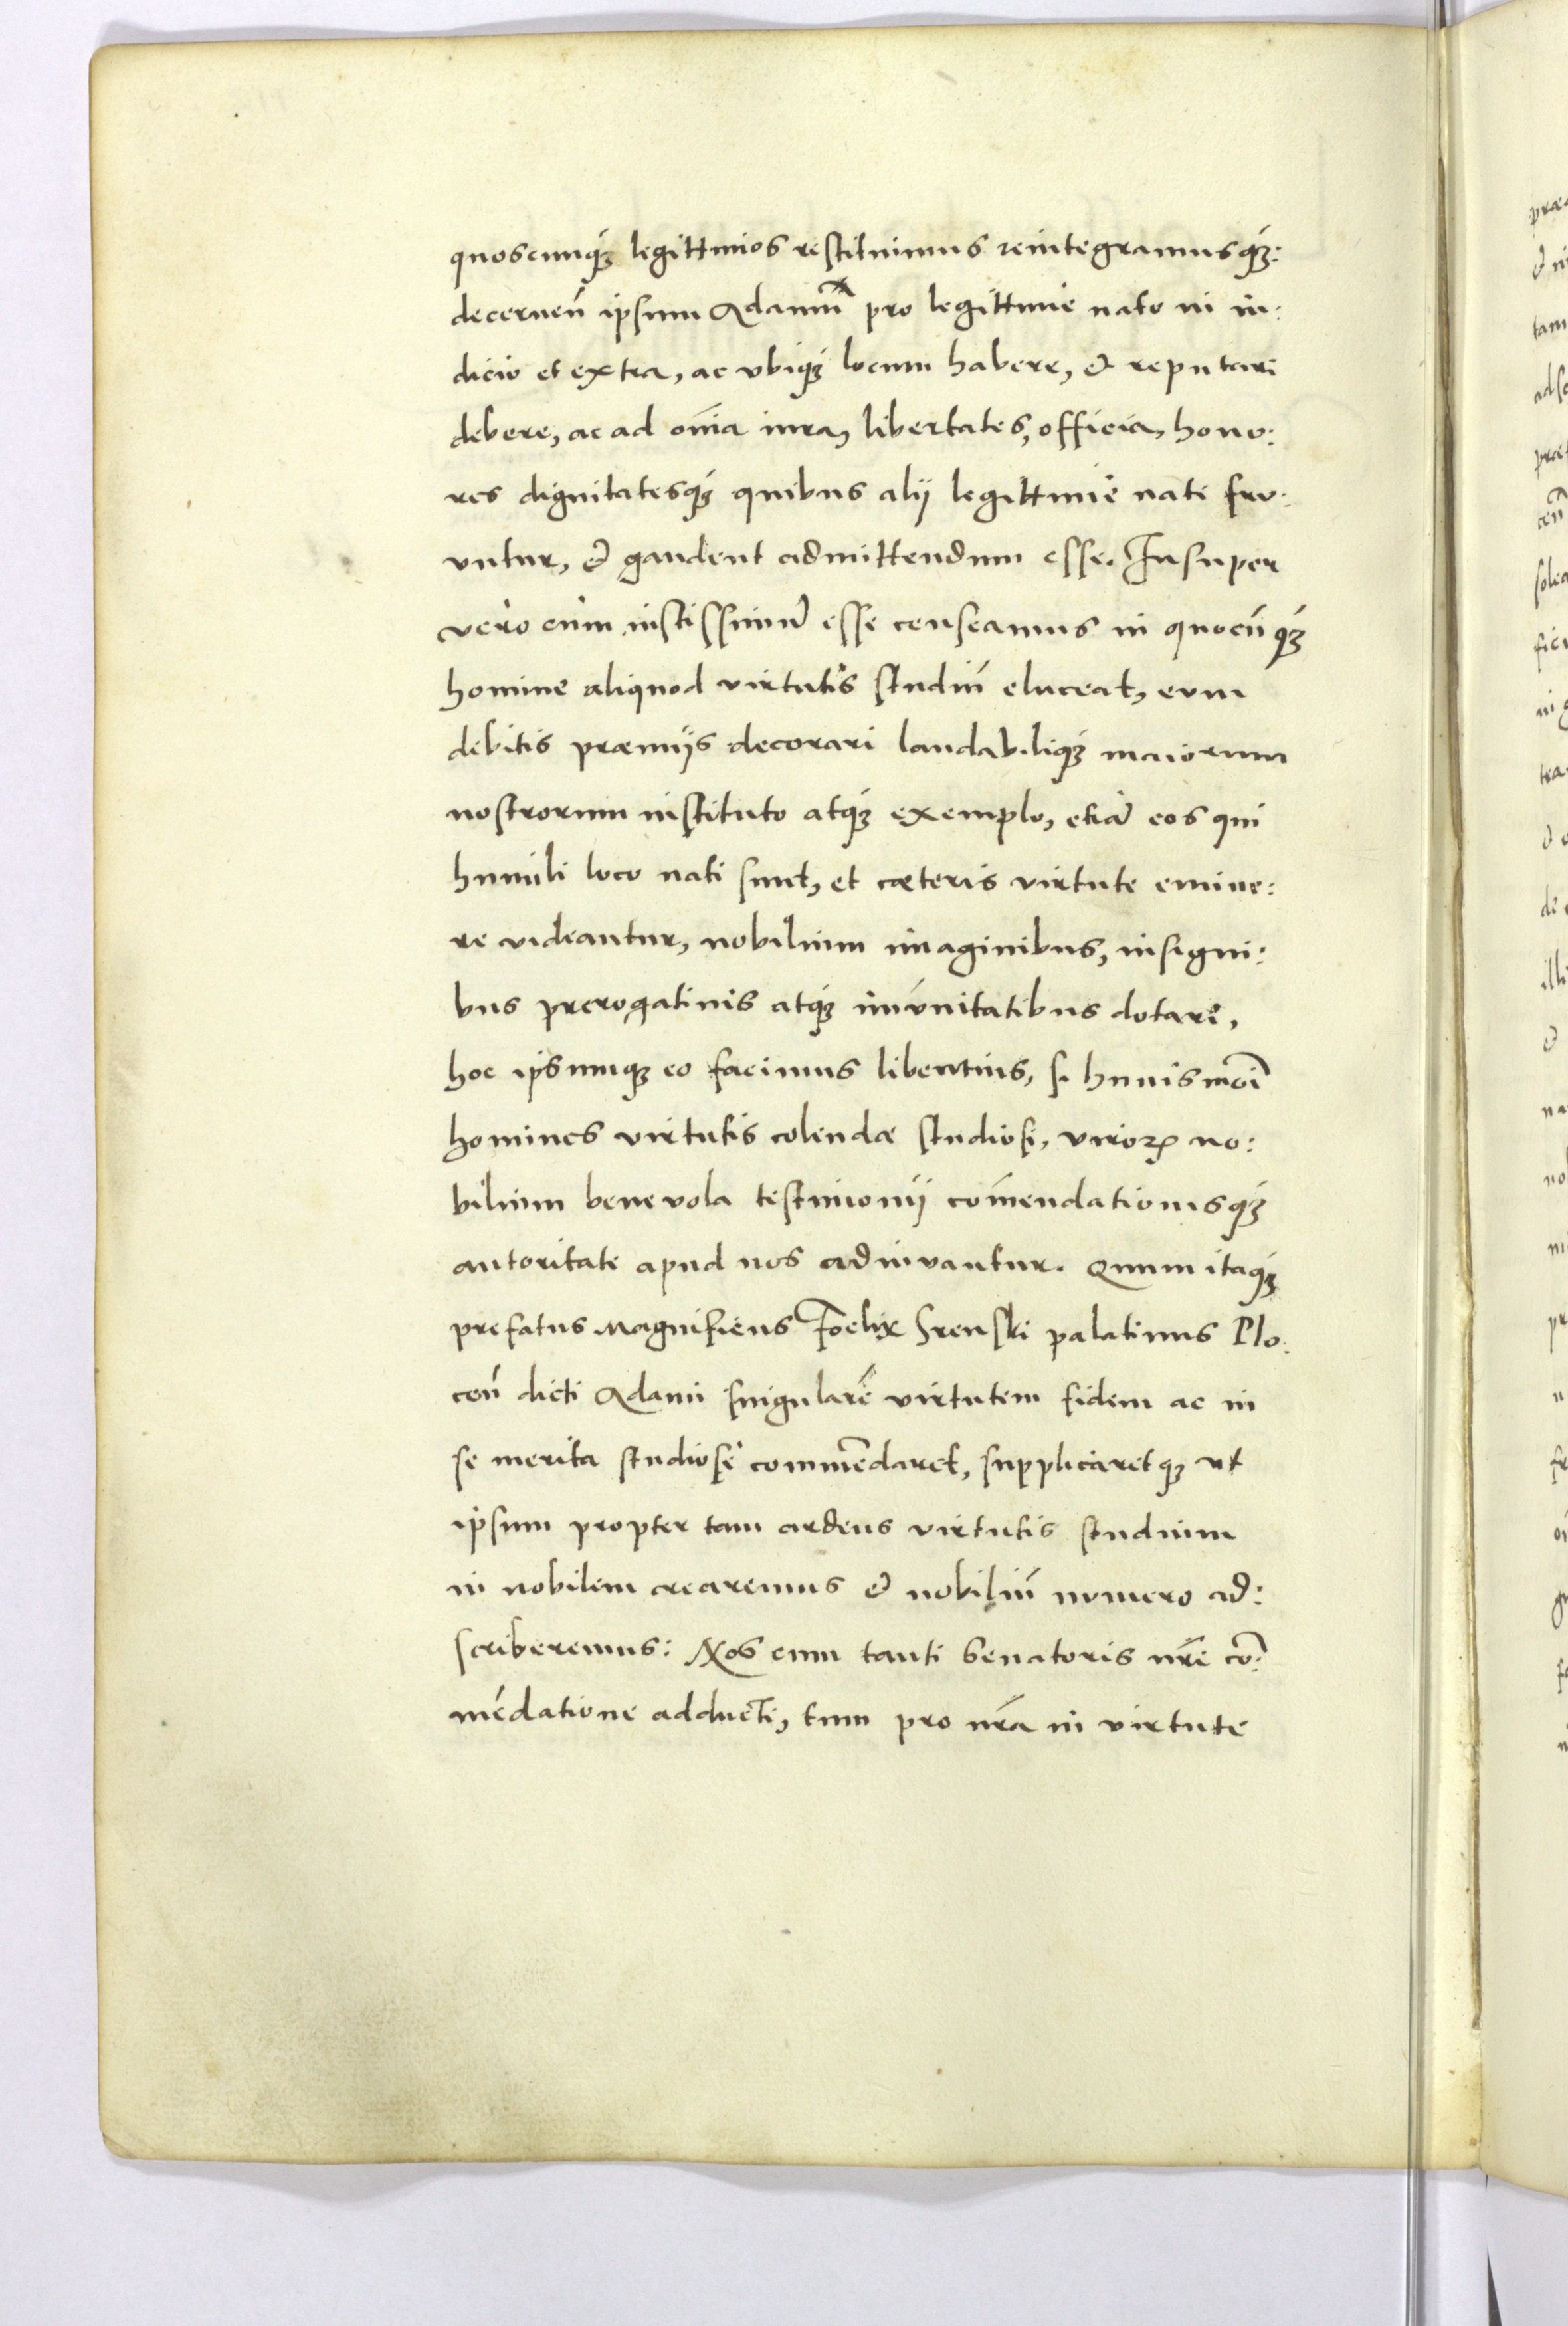 quoscunqꝫ legittimos restituimus reintegramusqꝫ:
decernen̄ ipsum Adamū pro legittime nato in iu:
dicio et extra, ac vbiqꝫ locum habere, & reputari
debere, ac ad om̄ia iura, libertates, officia, hono:
res dignitatesqꝫ quibus alij legittime nati fru:
untur, & gaudent admittendum esse. Insuper
vero cum iustissimū esse censeamus in quocūqꝫ
homine aliquod virtutis studiū eluceat, eum
debitis præmijs decorari laudabiliqꝫ maiorum
nostrorum instituto atqꝫ exemplo, etiā eos qui
humili loco nati sunt, et cæteris virtute emine:
re videantur, nobilium imaginibus, insigni:
bus prerogatiuis atqꝫ im̄unitatibus dotari,
hoc ipsumqꝫ eo facimus libentius, si huiusmōi
homines virtutis colendæ studiosi, virorꝝ no:
bilium beneuola testimonij com̄endationisqꝫ
autoritate apud nos adiuuantur. Quum itaqꝫ
prefatus Magnificus Foelix Srenski palatinus Plo:
cen̄ dicti Adami singularē virtutem fidem ac in
se merita studiose commēdaret, supplicaretqꝫ ut
ipsum propter tam ardens virtutis studium
in nobilem crearemus & nobiliū numero ad:
scriberemus: Nos cum tanti Senatoris nr̄i cō:
mēdatione adducti, tum pro nr̄a in virtute